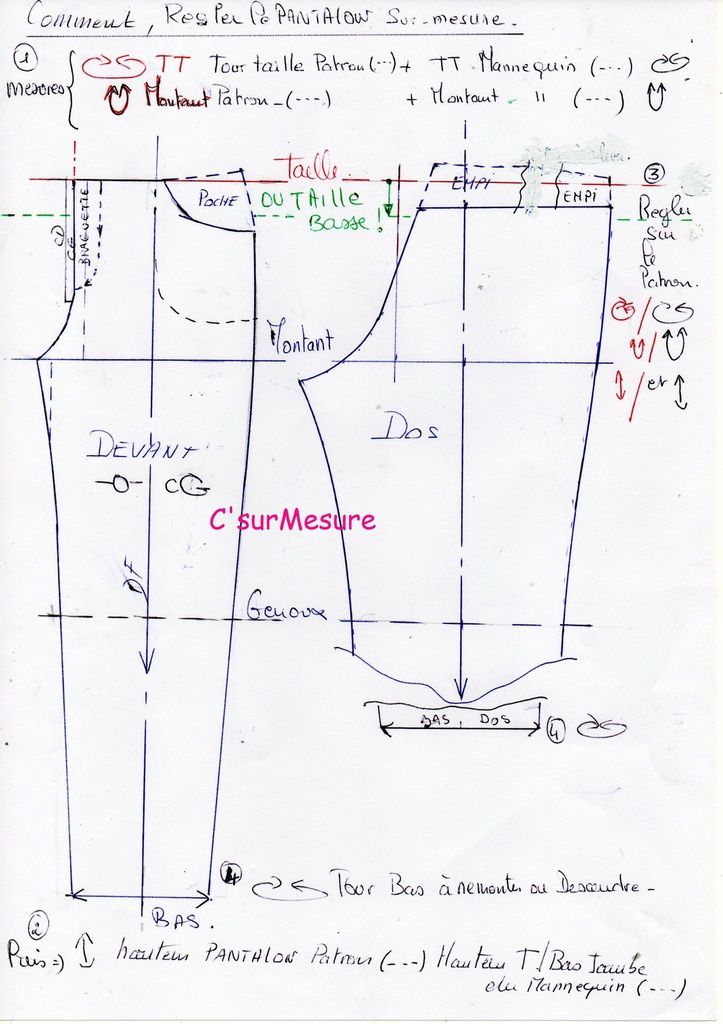 Comment, Regler le PANTALON Sur-mesure.
① mesures
TT Tour taille Patron (---) + TT Mannequin (---)
Montant Patron - (---) + Montant - " (---)
Taille
OU TAILLE
BASSE!
POCHE
BRAGUETTE
CD
CG
EMPI
EMPI
③
Regler
sur
le
Patron.
et
Montant
DEVANT
CG
DOS
C'surMesure
DF
Genoux
BAS DOS
④
④ Tour Bas à remonter ou Descendre -
BAS.
②
Puis => hauteur PANTALON Patron (---) Hauteur T/Bas Jambe
du Mannequin (---)